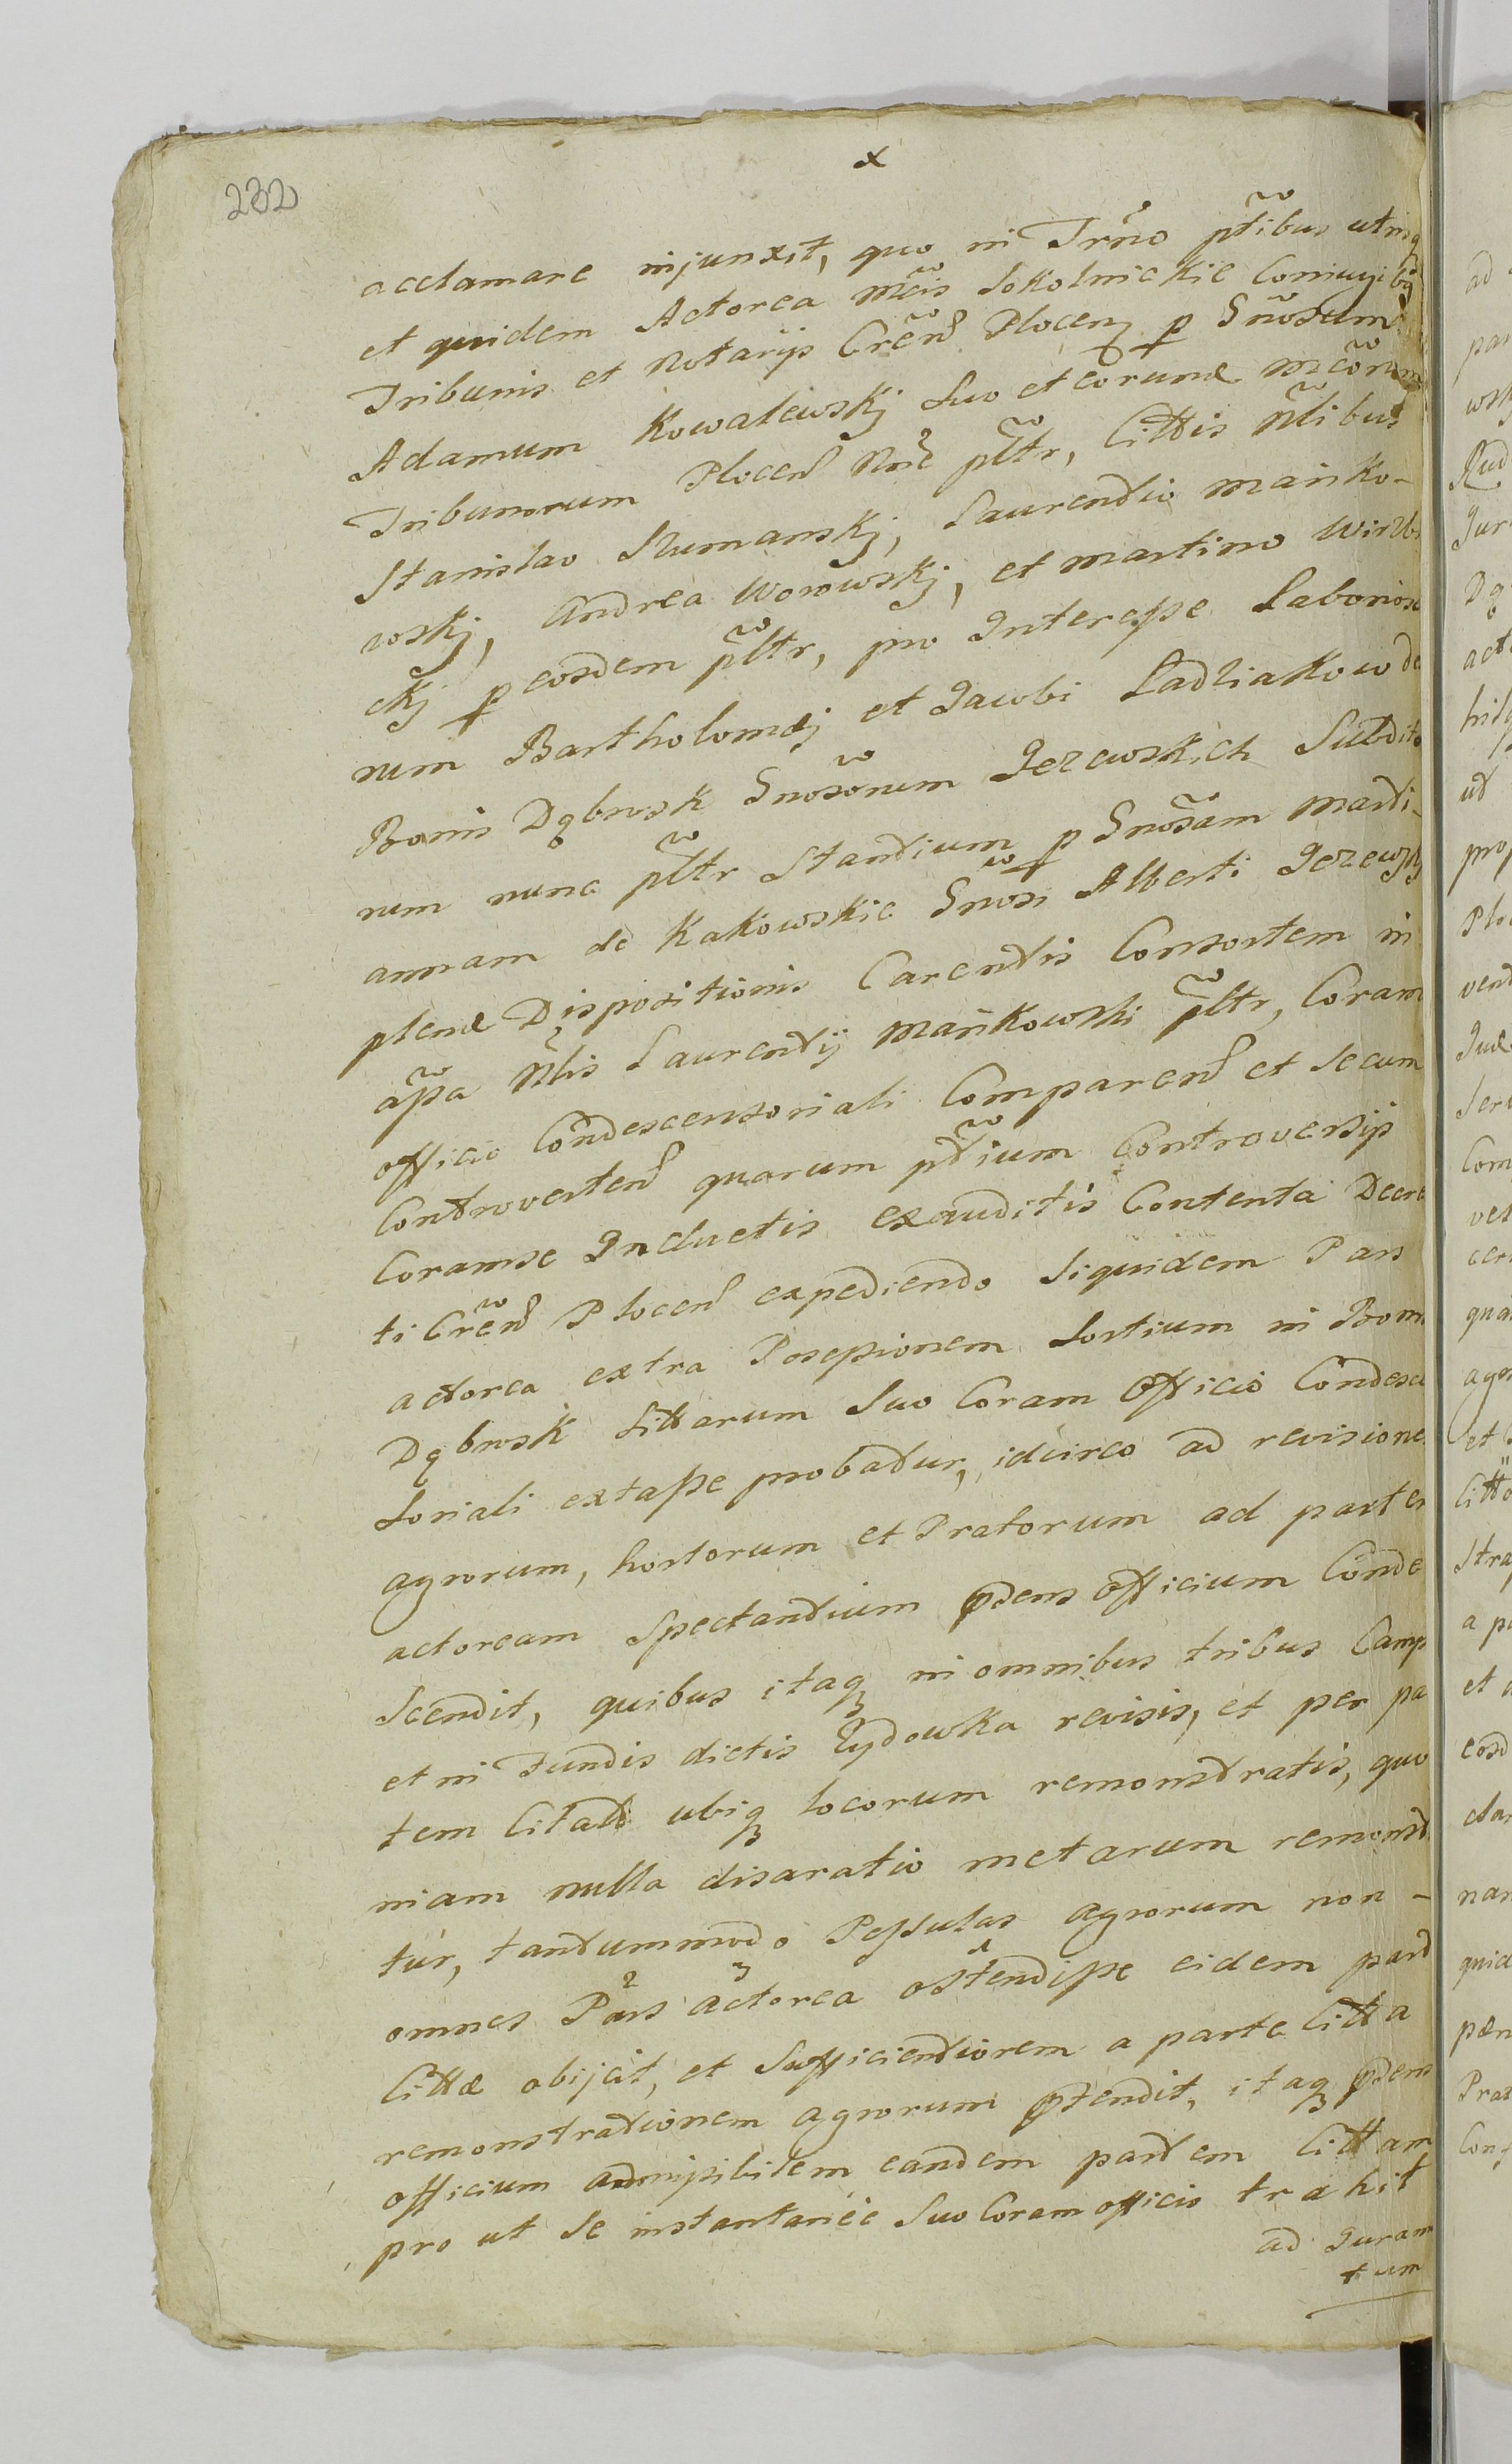 x
232
acclamare injunxit, quo in Trño ptibus utriq
et quidem Actorea Mcis Sokolnickie Coniugibq
Tribunis et Notarijs Cren Plocen p Gnosum
Adamum Kowalewskj suo et eorund Mcorum
Tribunorum Plocen Nne pltr, Cittis Nlibus
Stanislao Szumanskj, Laurentio Mańko-
wskj, Andrea Worowskj, et Martino Wirzbi
ckj p eosdem pltr, pro Interesse Laborioso
rum Bartholomæj et Jacobi Ladziakow de
Bonis Dąbrosk Gnosorum Jezewskich Subdito
rum nunc pltr Stantium p Gnosam Mari-
annam de Kakowskie Gnosi Alberti Jezewskj
plene Dispositionis Carentis Consortem in
assa Nlis Laurentij Mańkowski pltr, Coram
officio Condescensoriali Comparen et secum
Controverten quarum ptium Controversijs
Coramse Inductis exauditis Contenta Decre
ti Cren Plocen expediendo siquidem Pars
actorea extra Possessionem Sortium in Bonis
Dąbrosk Sittarum suo Coram Officio Condesce
soriali extasse probatur, idcirco ad revisione
agrorum, hortorum et Pratorum ad partem
actoream Spectantium pdens Officium Conde
scendit, quibus itaq in omnibus tribus Camp
et in Fundis dictis Zydowka revisis, et per pa
tem Citatt ubiq locorum remonstratis, quo
niam nulla disaratio metarum remonst
tur, tantummodo Pessulas agrorum non -
omnes Pars actorea ostendisse eidem part
Cittæ obijcit, et Sufficientiorem a parte Citta
remonstrationem agrorum ptendit, itaq pdens
officium admissibilem eandem partem Cittam
pro ut se instantanee suo Coram officio trahit
ad Juram
tum